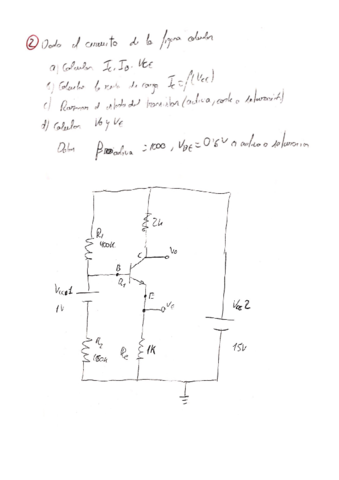 ② Dado el circuito de la figura calcular
a) Calcular IC, IB, VCE
b) Calcular la recta de carga IC = f(VCE)
c) Razonar el estado del transistor (activa, corte o saturación)
d) Calcular V0 y VE
Datos β activa = 1000, VBE = 0'6V
2k
R1
400K
C
V0
B
Q1
E
VE
1V
VCC2
15V
R2
RE
1K